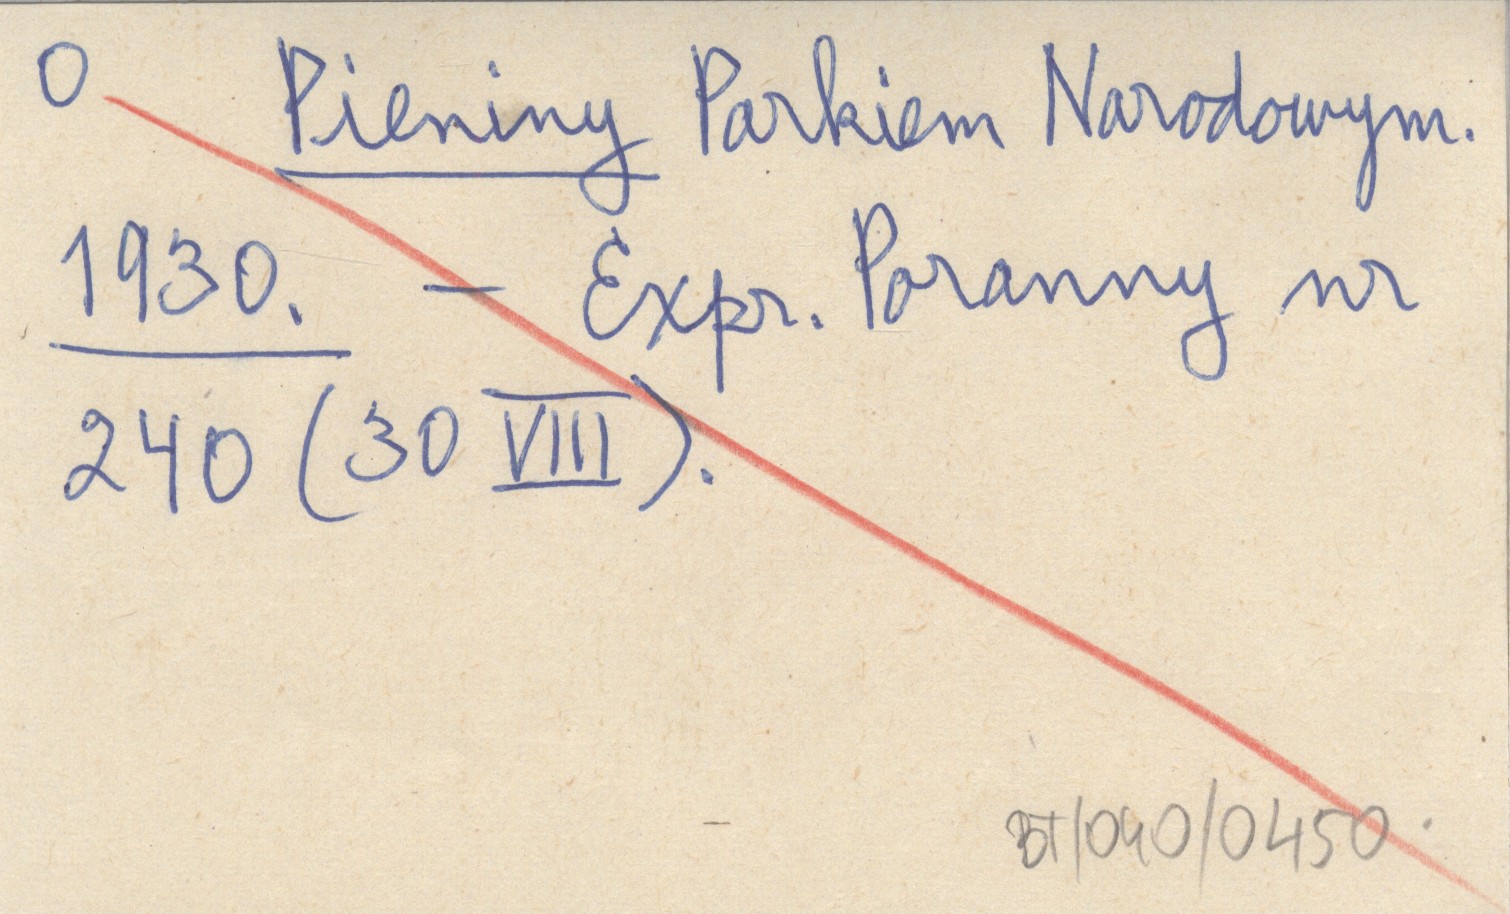 0 Pieniny Parkiem Narodowym.
1930. – Expr. Poranny nr
240 (30 VIII).
BT/040/0450